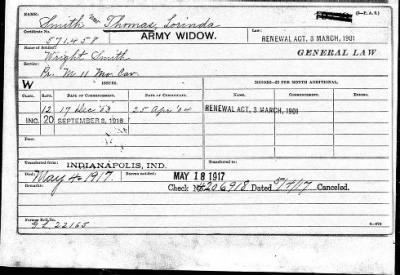 Smith now Thomas, Lorinda
Certificate No. 571458
ARMY WIDOW.
RENEWAL ACT, 3 MARCH, 1901
GENERAL LAW
Name of Soldier:
Wright Smith
Service:
Pr. M 11 Mo. Cav
W
ISSUES.
CLASS. RATE. DATE OF COMMENCEMENT. DATE OF CERTIFICATE.
12 17 Dec '03 25 Apr '04 RENEWAL ACT, 3 MARCH, 1901
INC. 20 SEPTEMBER 8, 1916
Transferred from INDIANAPOLIS, IND. Transferred to
Died May 4-1917. Bureau notified: MAY 18 1917
Remarks: Check No. 4206918 Dated 5/4/17 Canceled.
Former Roll No. GL 22165